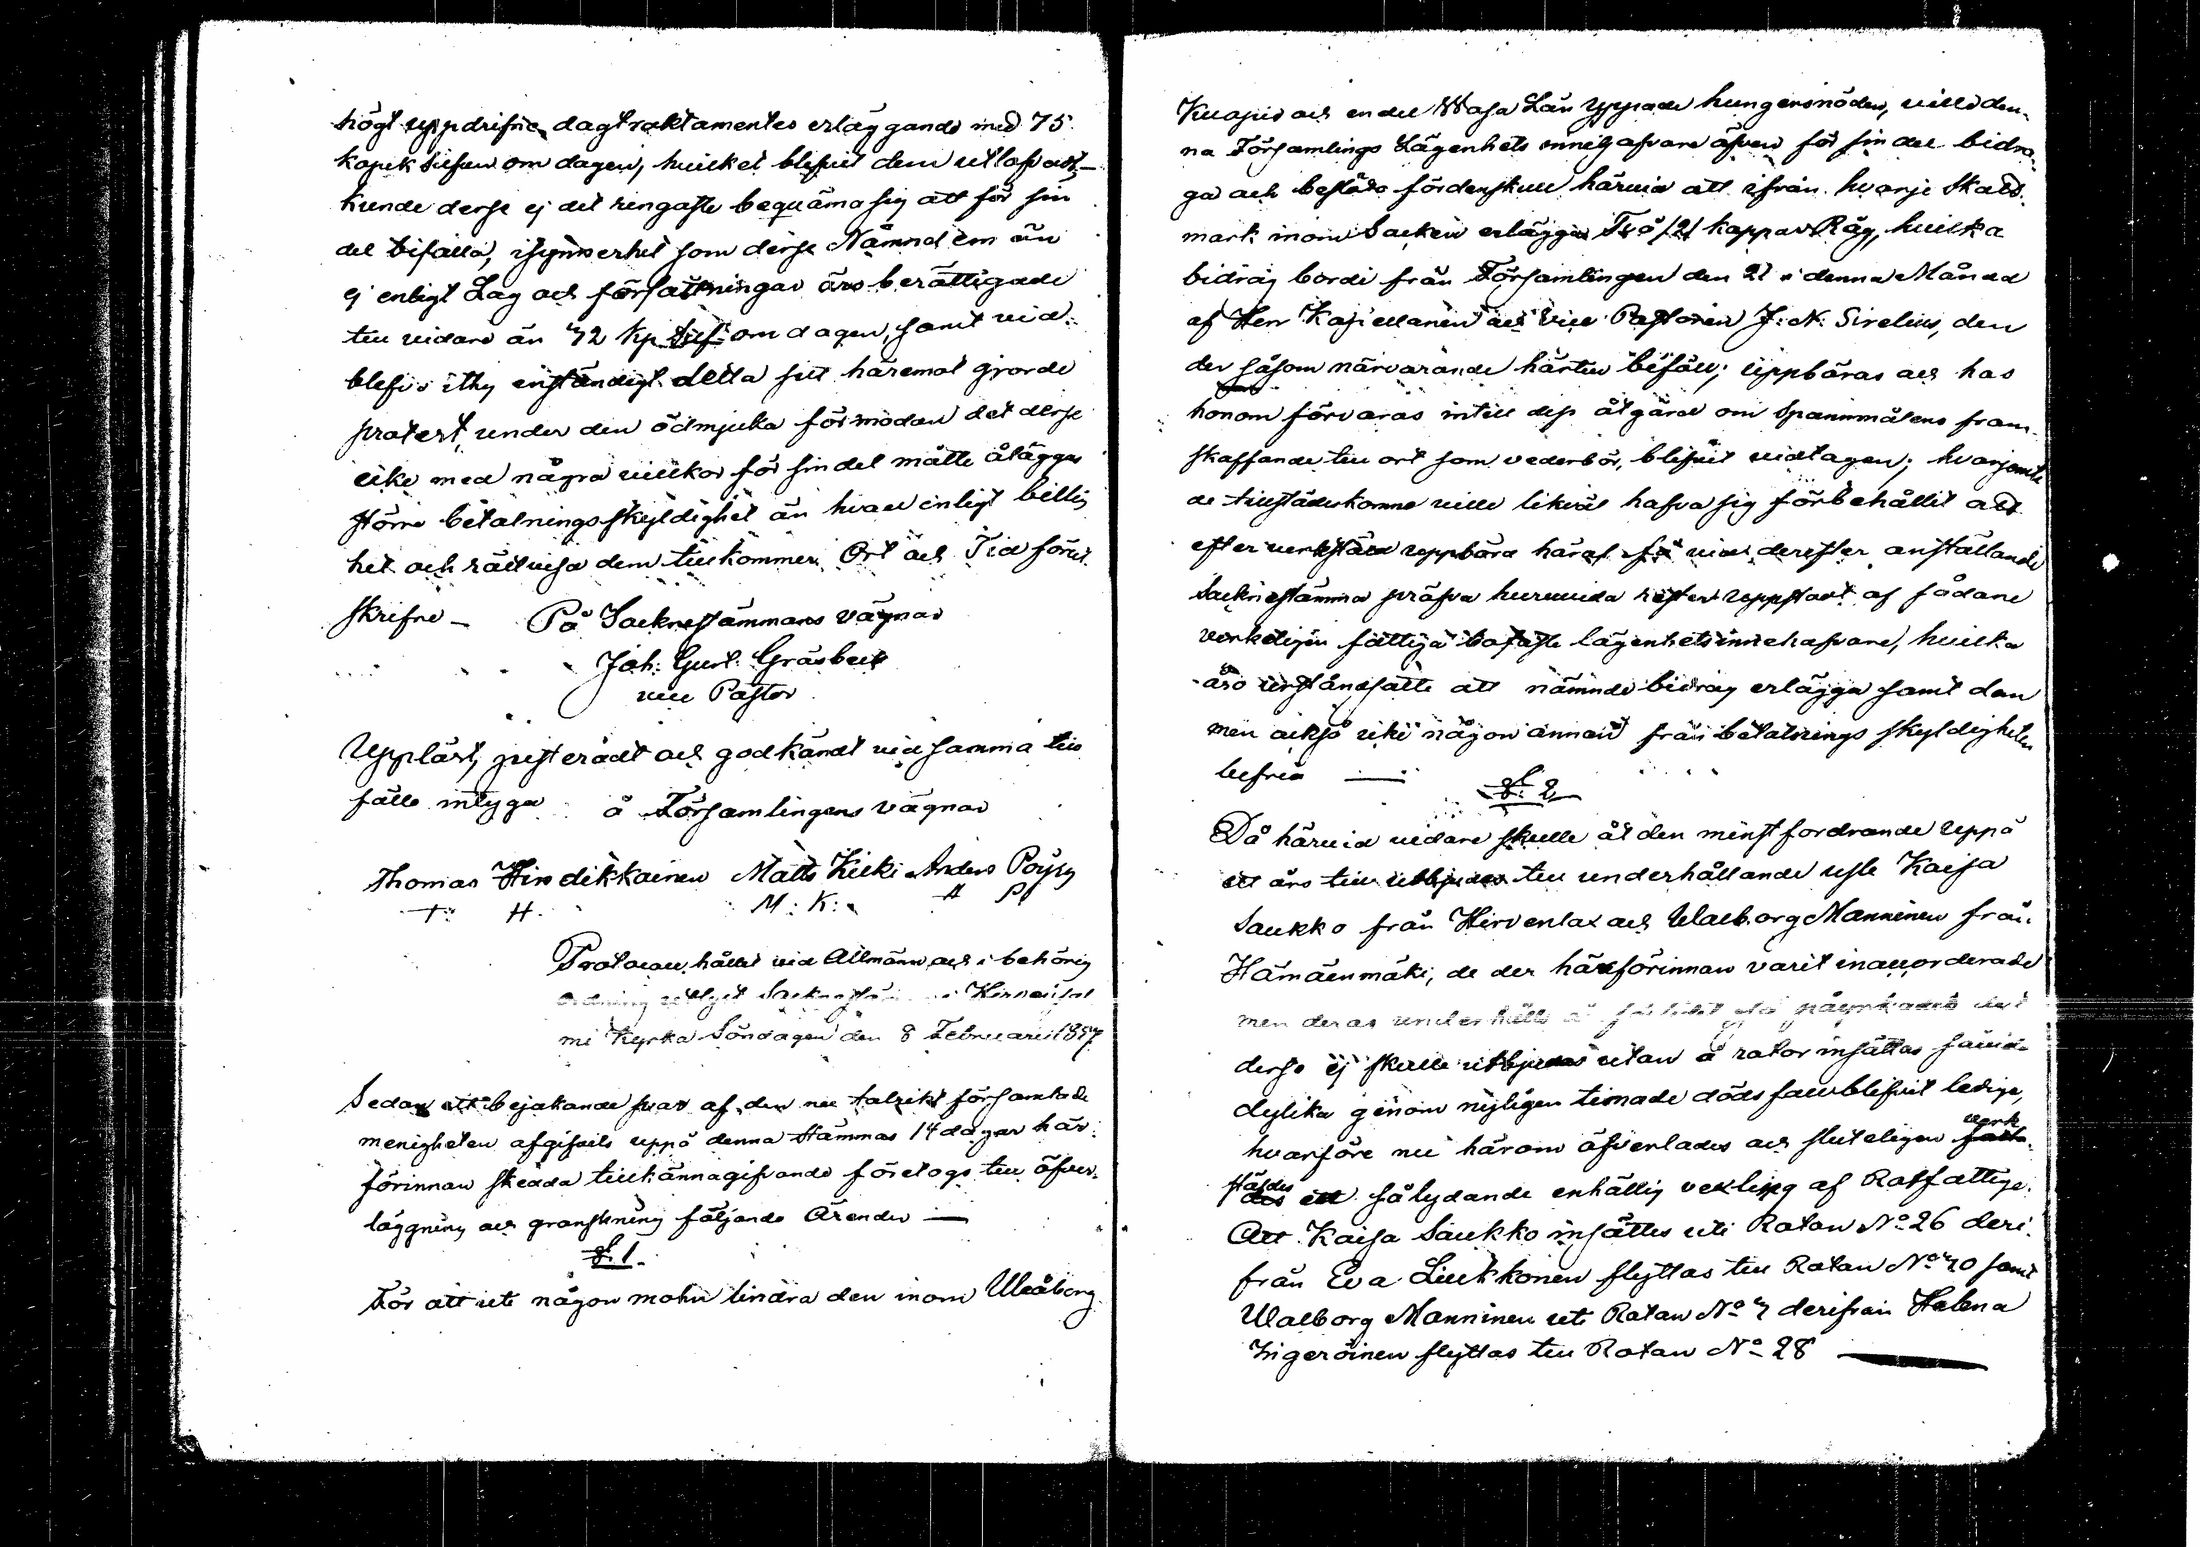 högt uppdrifne dagtraktamentes erläggande med 75
kopek Silfver om dagen, hvilket blifvit dem utlofvadt
kunde desse ej det ringaste beqväma sig att för sin
del bifalla, isynnerhet som desse Nämndemän
ej enligt Lag och författningar äro berättigade
till vidare än 42 kp Silf: om dagen, samt vid-
blefvo ithy enständigt detta sitt häremot gjorde
protest, under den ödmjuka förmodan det desse
icke med några villkor för sin del måtte åläggas
större betalningsskyldighet än hvad enligt billig
het och rättvisa dem tillkommer. Ort och Tid förut
skrifne —   På Sockne stämmans vägnar
Joh: Gust: Gråsbeck
vice Pastor
Uppläst, justeradt och godkändt vid samma till
fälle intyga   å Församlingens vägnar
Thomas Hindikkainen   Matts Kukki   Anders Pöysy
T: H.   M: K:   A P
Protocoll, hållet vid Allmänn och i behörig
ordning utlyst Socknestämma i Hirvensal
mi Kyrka Söndagen den 8 Februari 1857
Sedan ett bejakande svar af den nu talrikt församlade
menigheten afgifvits uppå denna stämmas 14 dagar här
förinnan skedda tillkännagifvande företogs till öfver-
läggning och granskning följande Ärender —
§. 1.
För att uti någon mohn lindra den inom Uleåborg
Kuopio och en del Wasa Län yppade hungersnöden, ville den-
na Församlings Lägenhets innehafvare äfven för sin del bidra-
ga och beslöto fördenskull härvid att ifrån hvarje Skatt-
mark inom Socken erlägga Två /2/ kappar Råg, hvilka
bidrag borde från Församlingen den 21 i denna Månad
af Herr Kapellanen och Vice Pastoren J: N: Sirelius, den
der såsom närvarande härtill biföll, uppbäras och hos
honom förvaras intill dess åtgärd om Spannmålens fram-
skaffande till ort som vederbör, blifvit vidtagen; hvarjemte
de tillstädeskomne ville likväl hafva sig förbehållit att
efter verkställd uppbörd häraf få vid derefter anställande
Socknestämma pröfva huruvida rester uppstått af sådane
verkeligen fattiga bofaste lägenhetsinnehafvare, hvilka
äro urståndsatte att nämnde bidrag erlägga samt dem
men också icke någon annan från betalnings skyldigheten
befria —
§. 2
Då härvid vidare skulle åt den minst fordrande uppå
ett års tid utbjudas till underhållande usle Kaisa
Saukko från Hirvenlax och Walborg Manninen från
Hämäenmäki, de der härförinnan varit inaccorderade
men deras underhåll påyrkades det
desse ej skulle utbjudas utan å rotor insättas såvida
dylika genom nyligen timade dödsfall blifvit ledige,
hvarföre nu härom öfverlades och sluteligen verk
ställdes sålydande enhällig vexling af Rotfattige.
Att Kaisa Saukko insättes uti Rotan No 26 deri-
från Eva Liukkonen flyttas till Rotan No 40 samt
Walborg Manninen uti Rotan No 4 derifrån Helena
Ingeröinen flyttas till Rotan No 28 —